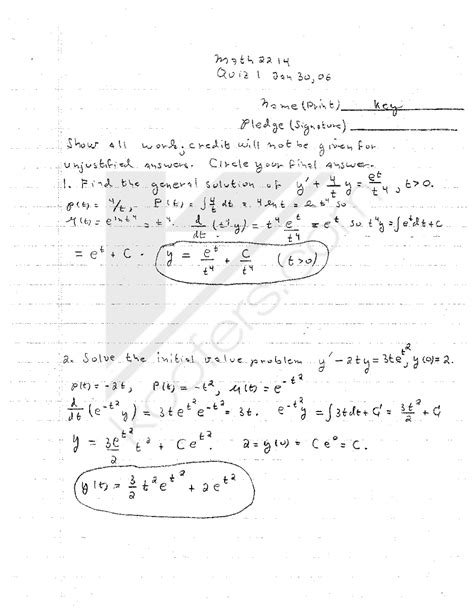 Math 2214
Quiz 1 Jan 30, 06
Name (Print) Key
Pledge (Signature)
Show all work; credit will not be given for
unjustified answers. Circle your final answer.
1. Find the general solution of y' + 4/t y = e^t/t^4, t>0.
p(t) = 4/t, P(t) = ∫ 4/t dt = 4 ln t = ln t^4 so
μ(t) = e^{ln t^4} = t^4. d/dt (t^4 y) = t^4 e^t/t^4 = e^t so t^4 y = ∫ e^t dt + C
= e^t + C. y = e^t/t^4 + C/t^4 (t>0)
2. Solve the initial value problem y' - 2ty = 3te^{t^2}, y(0)=2.
p(t) = -2t, P(t) = -t^2, μ(t) = e^{-t^2}
d/dt (e^{-t^2} y) = 3te^{t^2} e^{-t^2} = 3t. e^{-t^2} y = ∫ 3t dt + C = 3t^2/2 + C
y = 3e^{t^2}/2 t^2 + Ce^{t^2}. 2 = y(0) = Ce^0 = C.
y(t) = 3/2 t^2 e^{t^2} + 2e^{t^2}
koofers.com